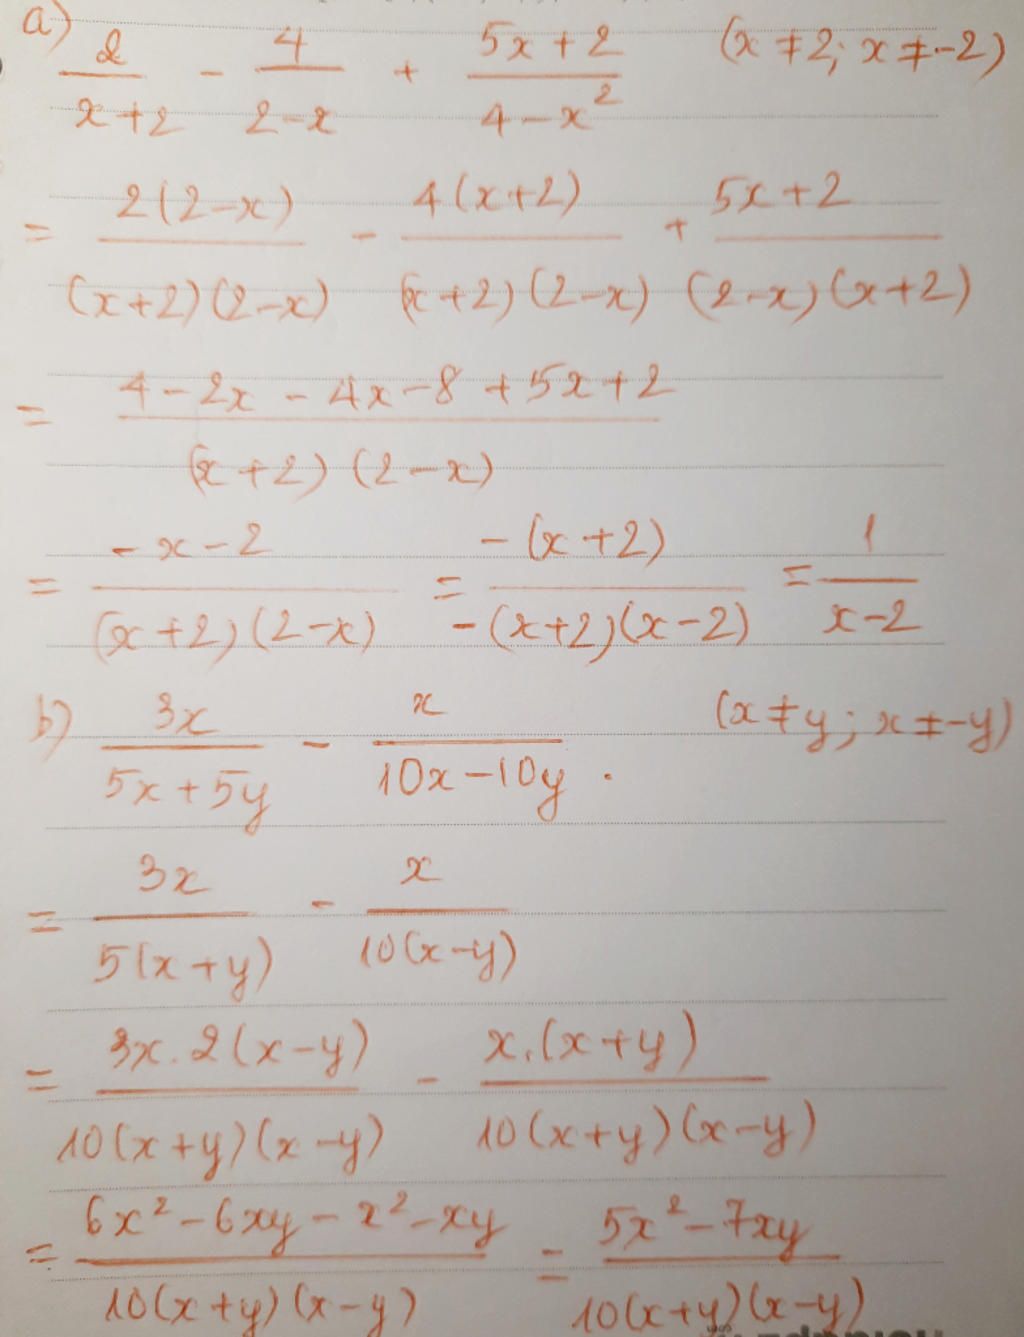 a) 2/(x+2) - 4/(2-x) + (5x+2)/(4-x²) (x≠2; x≠-2)
= 2(2-x)/((x+2)(2-x)) - 4(x+2)/((x+2)(2-x)) + (5x+2)/((2-x)(x+2))
= (4-2x-4x-8+5x+2)/((x+2)(2-x))
= (-x-2)/((x+2)(2-x)) = -(x+2)/(-(x+2)(x-2)) = 1/(x-2)
b) 3x/(5x+5y) - x/(10x-10y) . (x≠y; x≠-y)
= 3x/(5(x+y)) - x/(10(x-y))
= 3x.2(x-y)/(10(x+y)(x-y)) - x.(x+y)/(10(x+y)(x-y))
= (6x²-6xy-x²-xy)/(10(x+y)(x-y)) = (5x²-7xy)/(10(x+y)(x-y))